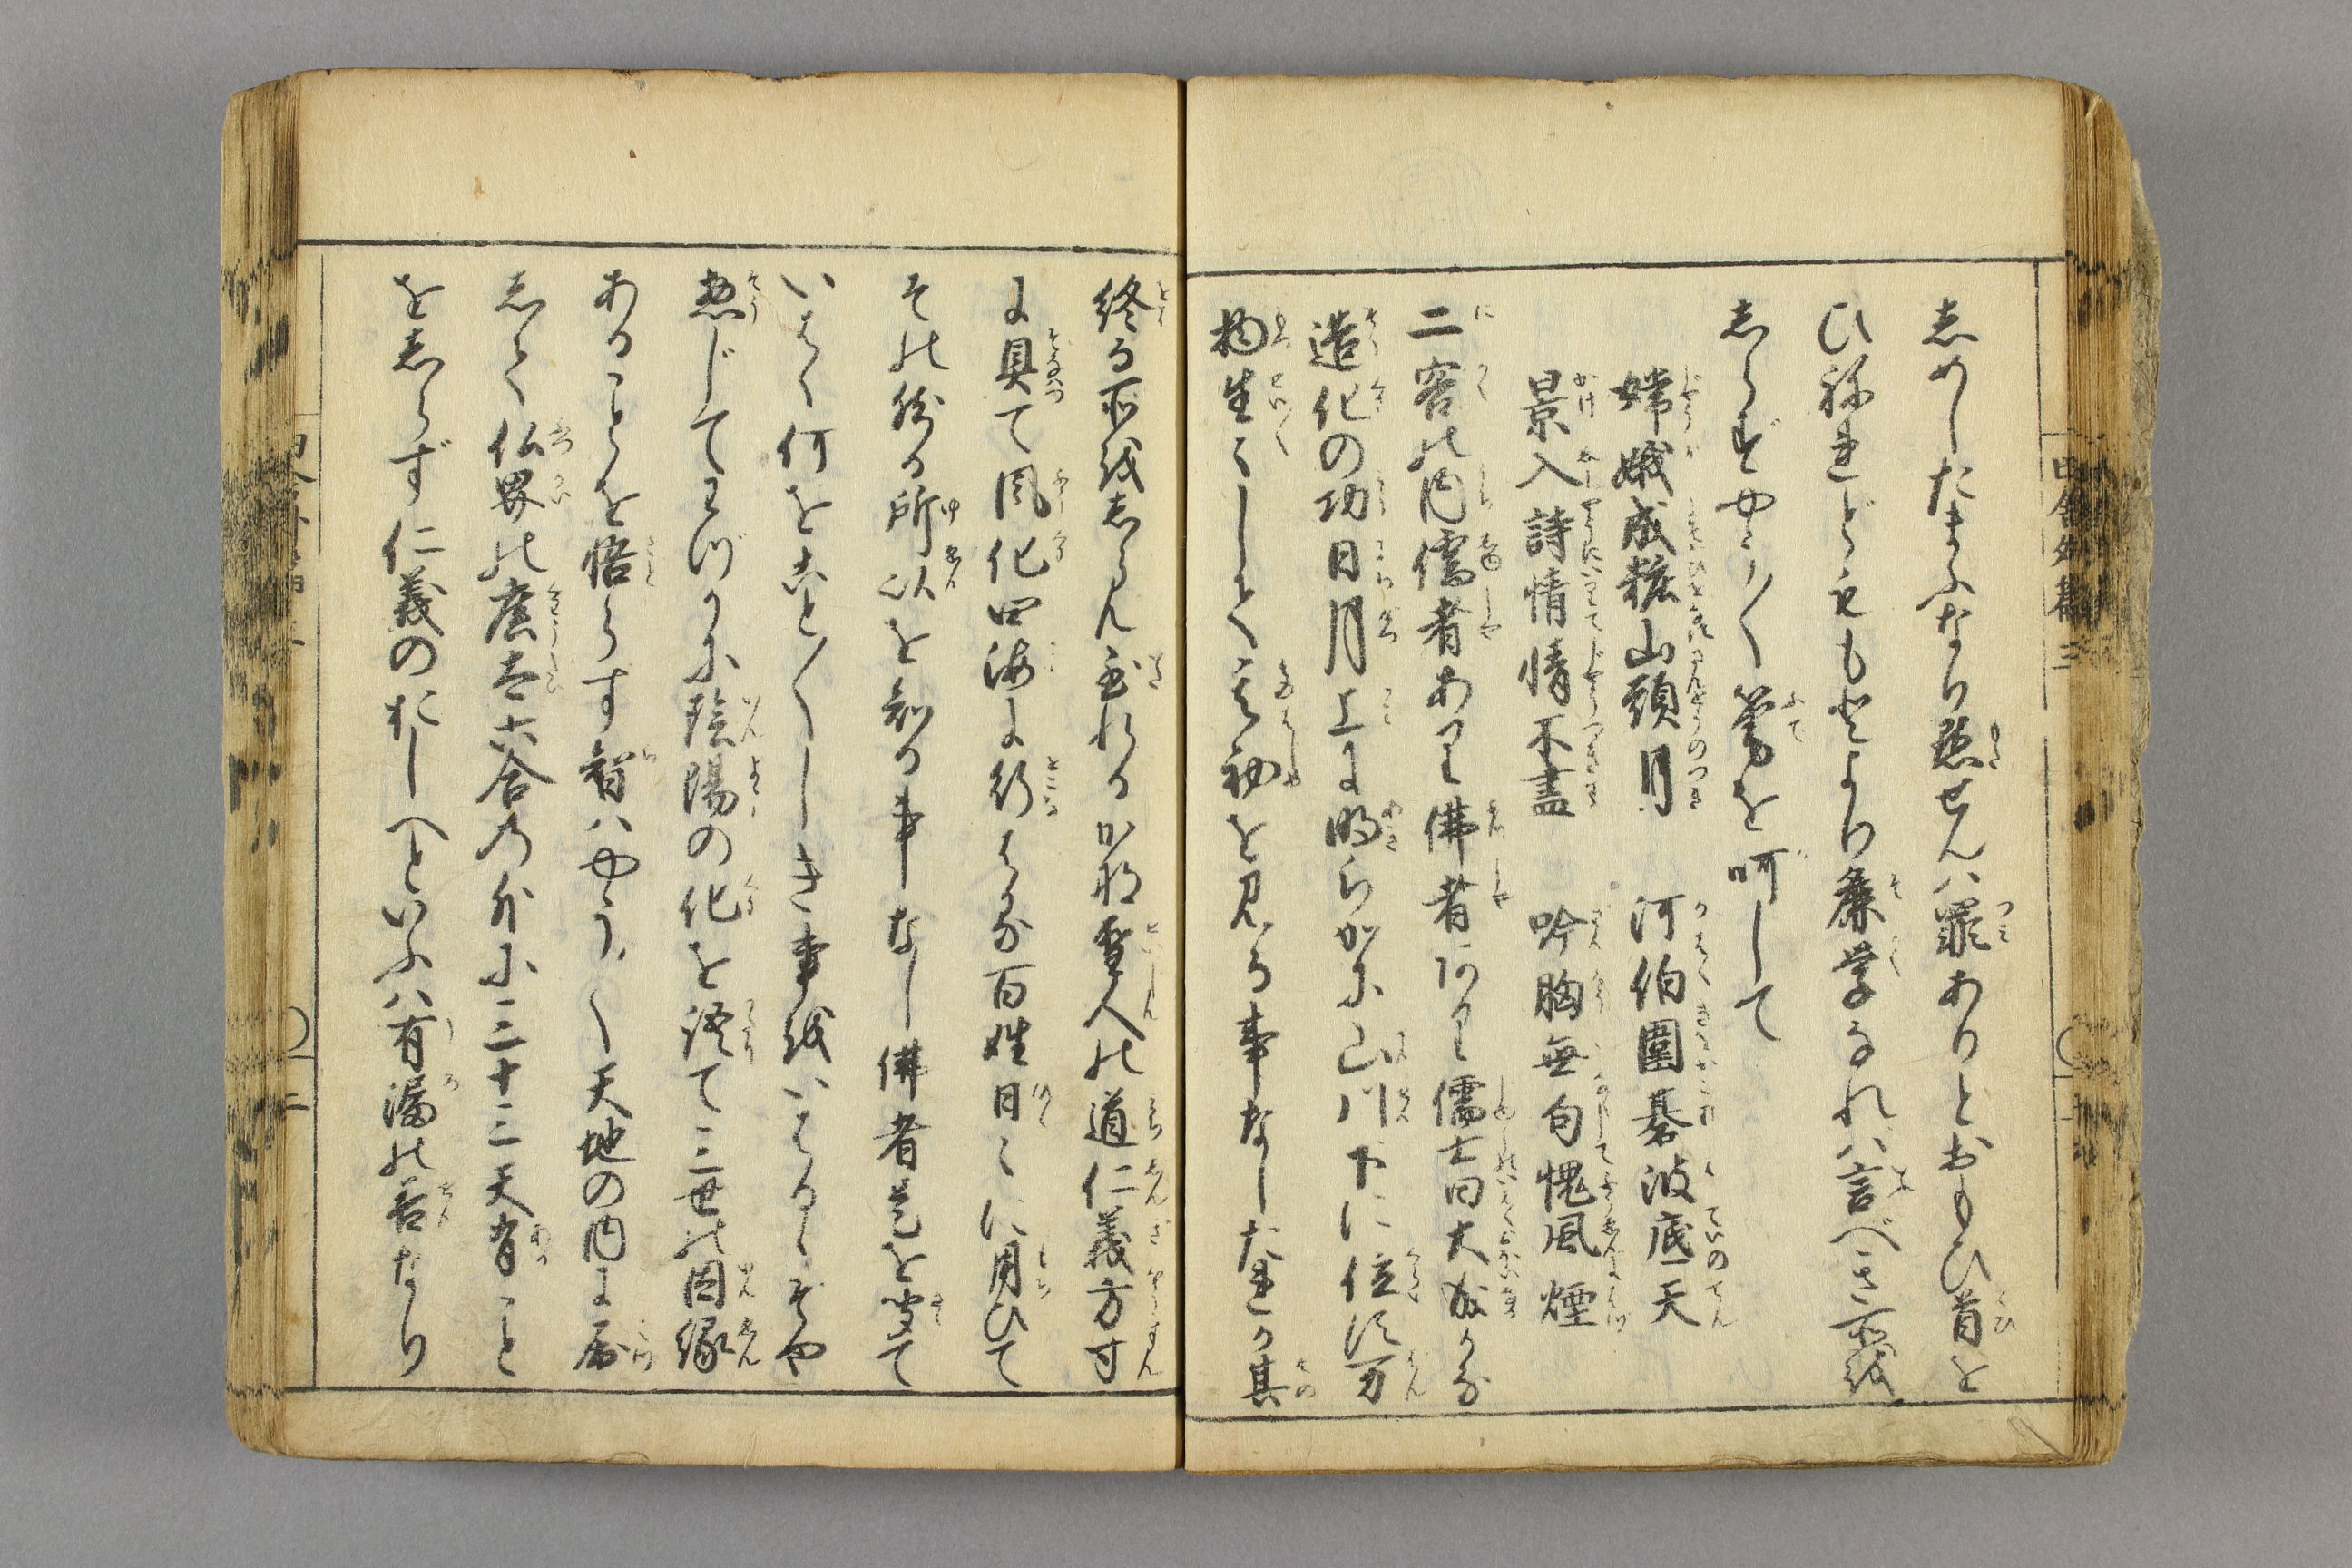 しめしたまふなり慝せんハ罪ありとおもひ首を
ひねれどももとより麁学なれハ言べき所を
しらずやう〳〵筆を呵して
嫦娥成粧山頭月　河伯圍碁波底天
景入詩情情不盡　吟胸無句愧風煙
二客の内儒者あり佛者あり儒士曰大哉
造化の功日月上に明らかに山川下に位し万
物生〻して其初を見る事なしたれか其
終る所をしらん至れるかな聖人の道仁義方寸
に具て風化四海に行はる百姓日〻に用ひて
その然る所以を知る事なし佛者是を聞て
いはく何をこと〳〵しき事をいはるゝぞや
惣じてわづかに陰陽の化を語て三世の因縁
あることを悟らず智ハやう〳〵天地の内に局
して仏界の広大六合の外に三十三天有こと
をしらず仁義のおしへといふハ有漏の善なり
田舎外篇 三
二